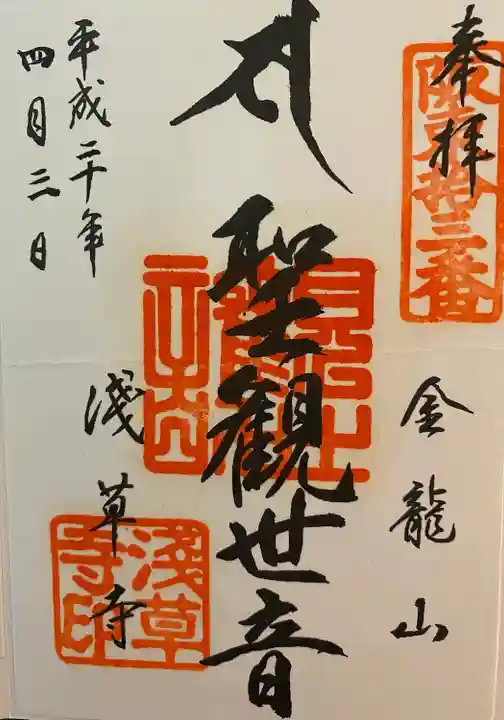 奉拝
坂東拾三番
金龍山
聖観世音
浅草寺
浅草寺印
平成二十年
四月三日